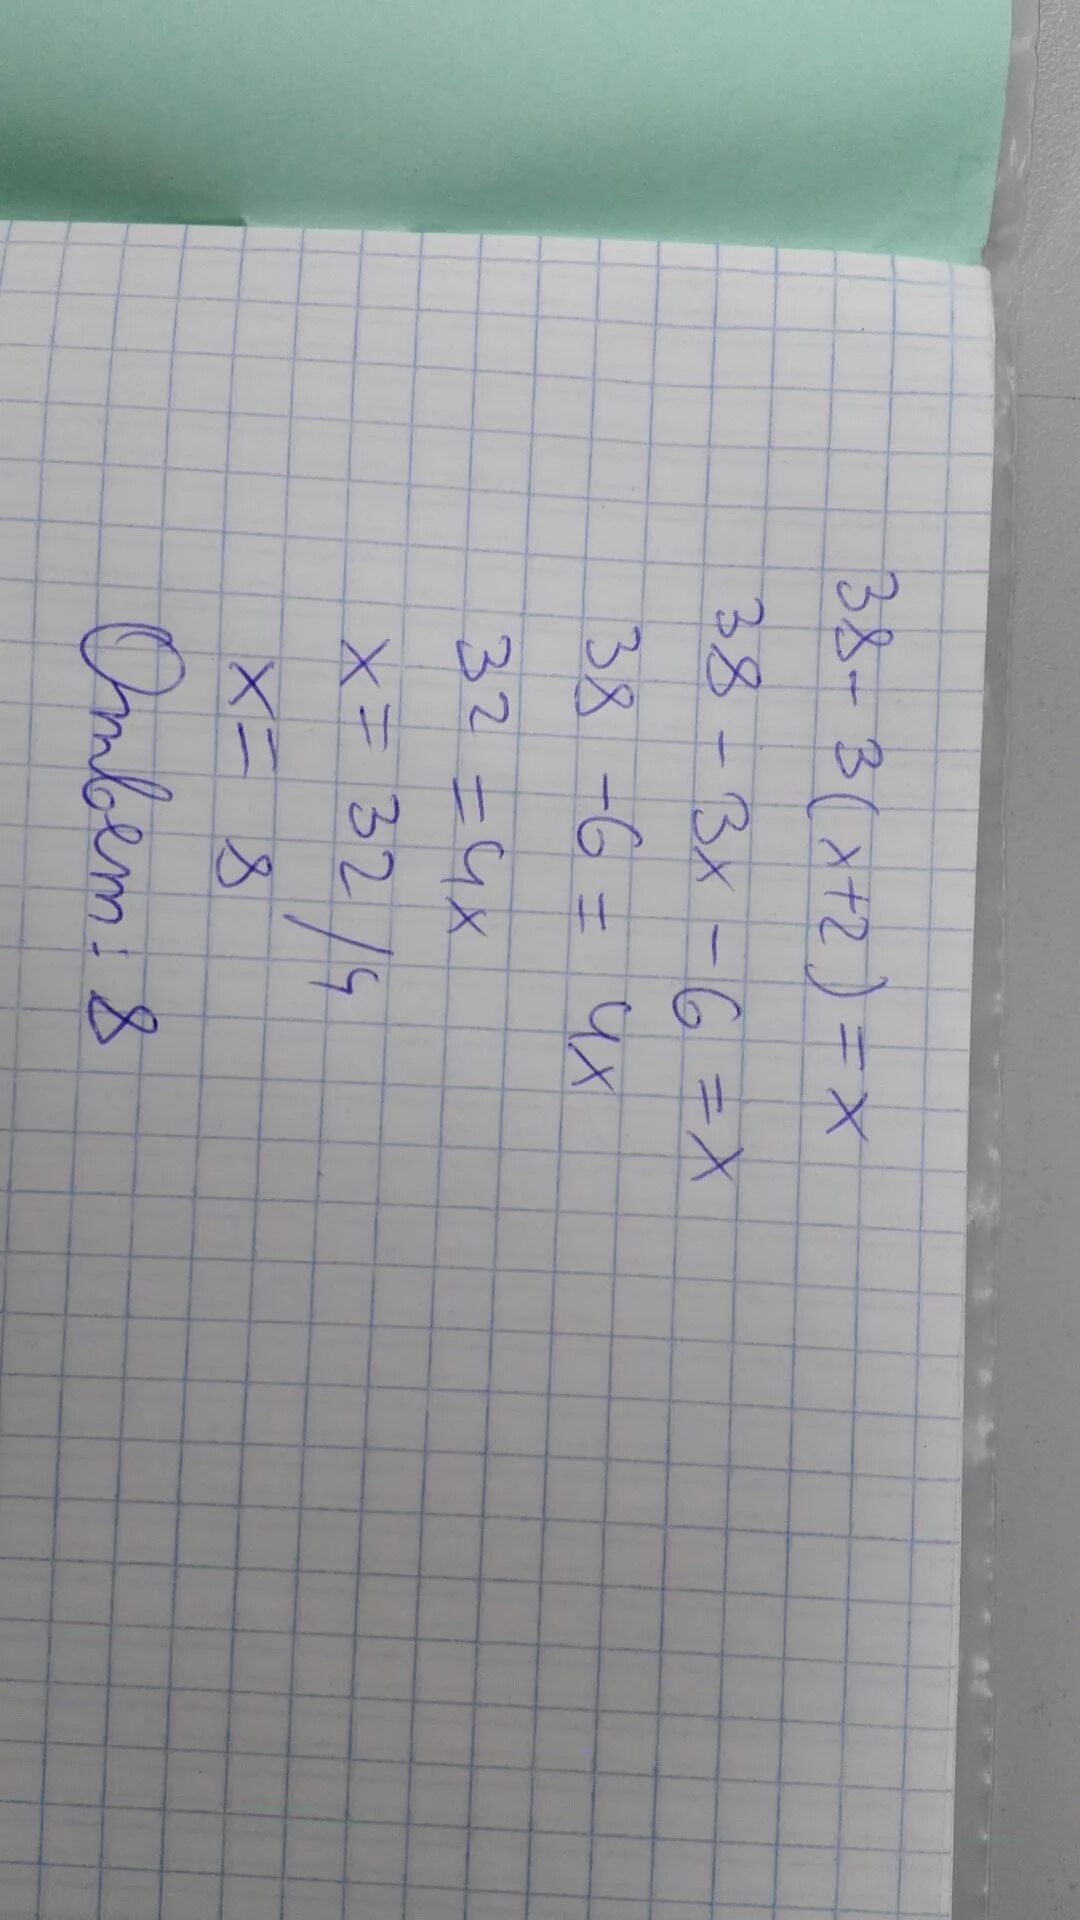 38 - 3(x+2) = x
38 - 3x - 6 = x
38 - 6 = 4x
32 = 4x
x = 32/4
x = 8
Ответ: 8